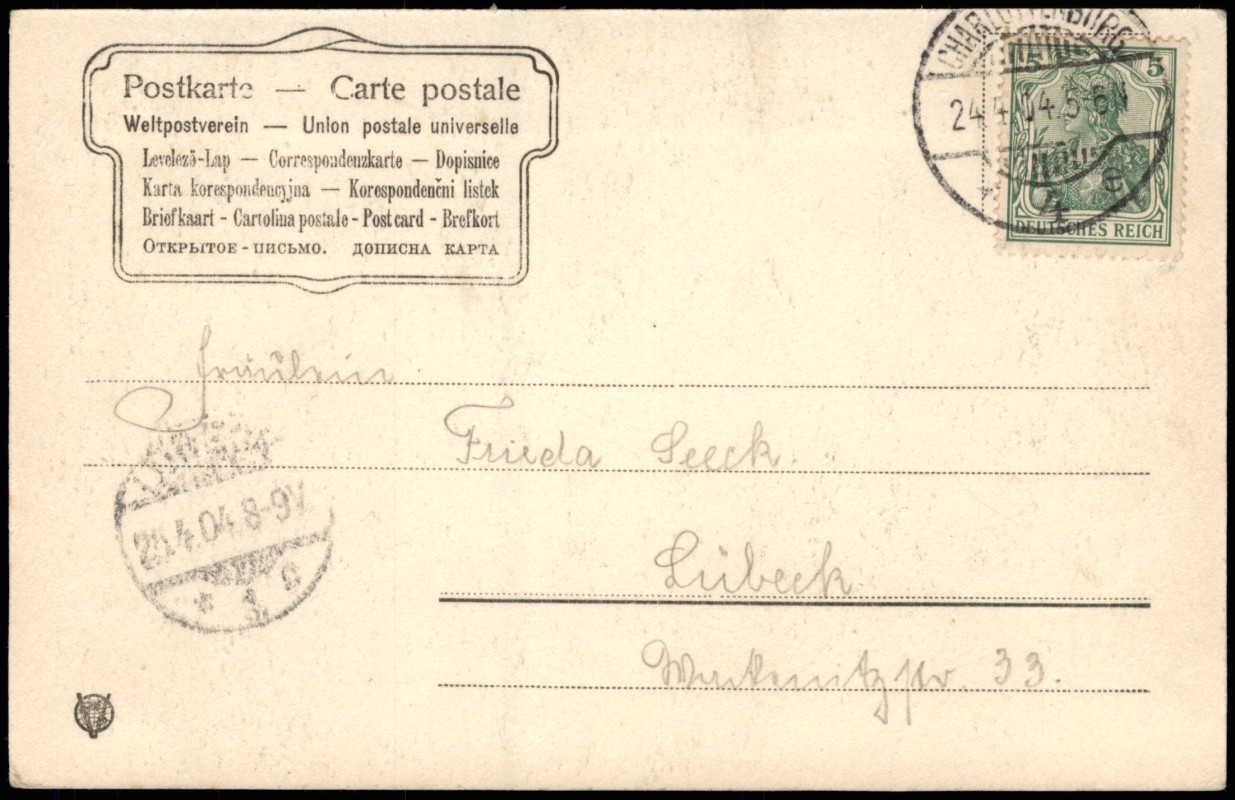 Postkarte — Carte postale
Weltpostverein — Union postale universelle
Levelező-Lap — Correspondenzkarte — Dopisnice
Karta korespondencyjna — Korespondenčni listek
Briefkaart - Cartolina postale - Post card - Brefkort
Открытое - письмо. дописна карта
CHARLOTTENBURG
24.4.04.5-6N
e
5 5
DEUTSCHES REICH
Fräulein
Frieda Seeck.
Lübeck
Wakenitzstr. 33.
25.4.04.8-9V.